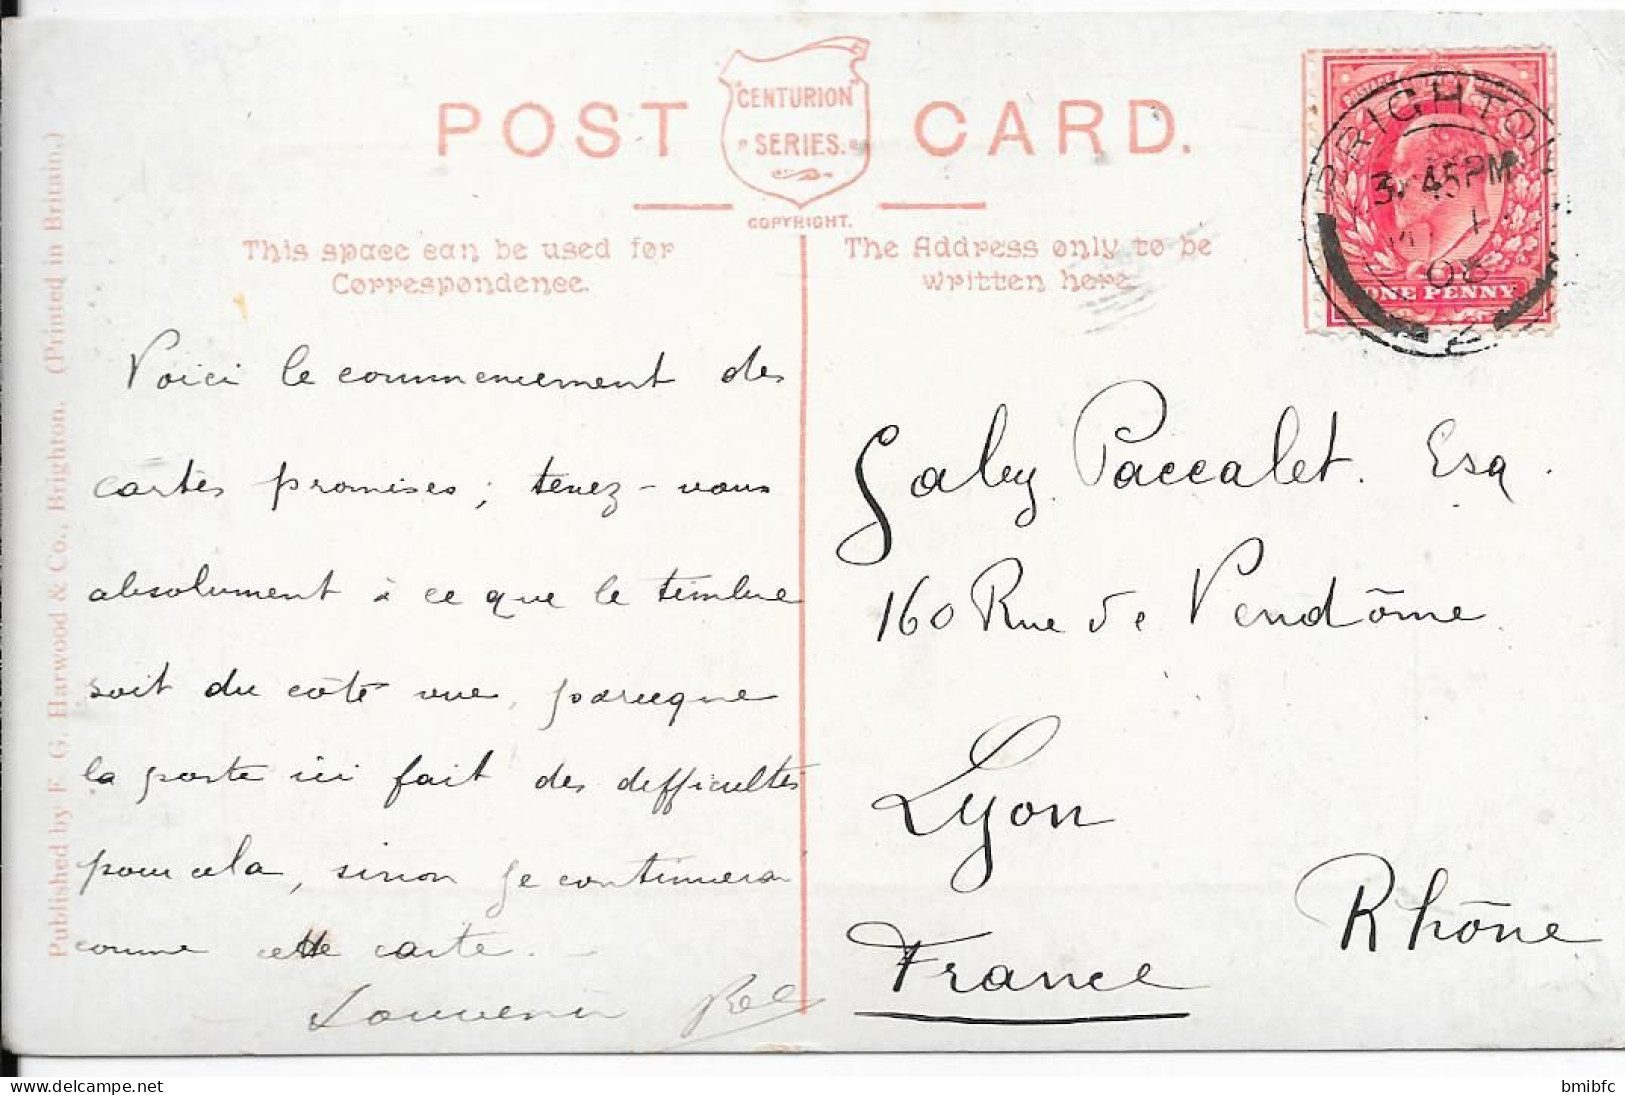 POST CARD.
"CENTURION"
SERIES.
COPYRIGHT.
This space can be used for
Correspondence.
The Address only to be
written here.
BRIGHTON
3.45PM
1
08
ONE PENNY
Published by F. G. Harwood & Co., Brighton. (Printed in Britain.)
Voici le commencement des
cartes promises ; tenez-vous
absolument à ce que le timbre
soit du côté vue, parceque
la poste ici fait des difficultés
pour cela, sinon je continuerai
comme cette carte.
Souvenir
Gaby Paccalet. Esq.
160 Rue de Vendôme.
Lyon
Rhône
France
bmibfc